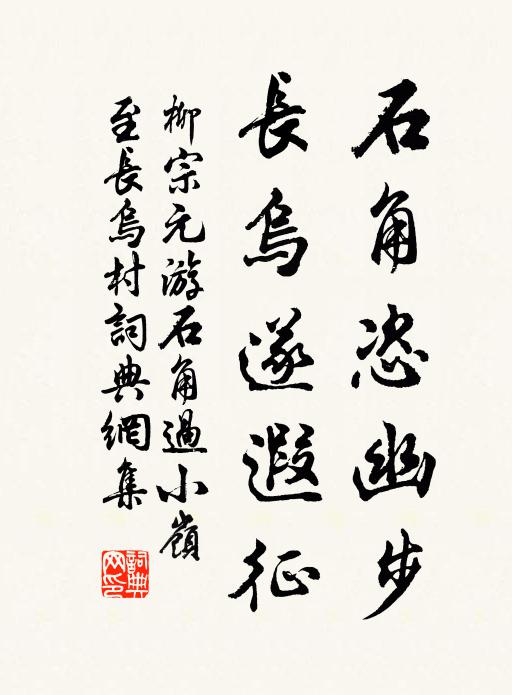 石角恣幽步
長烏遂遐征
柳宗元游石角過小嶺
至長烏村詞典網集
詞典
网印